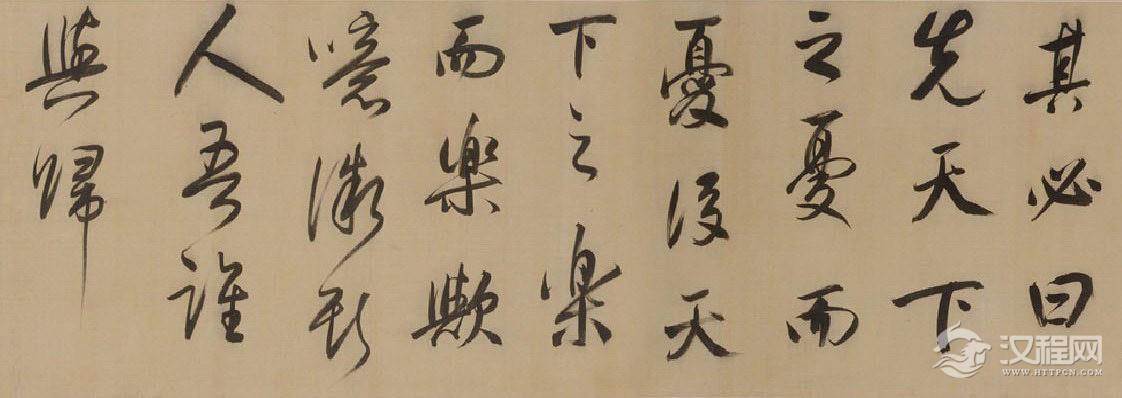 其必曰
先天下
之憂而
憂後天
下之樂
而樂歟
噫微斯
人吾誰
與歸
汉程网
WWW.HTTPCN.COM